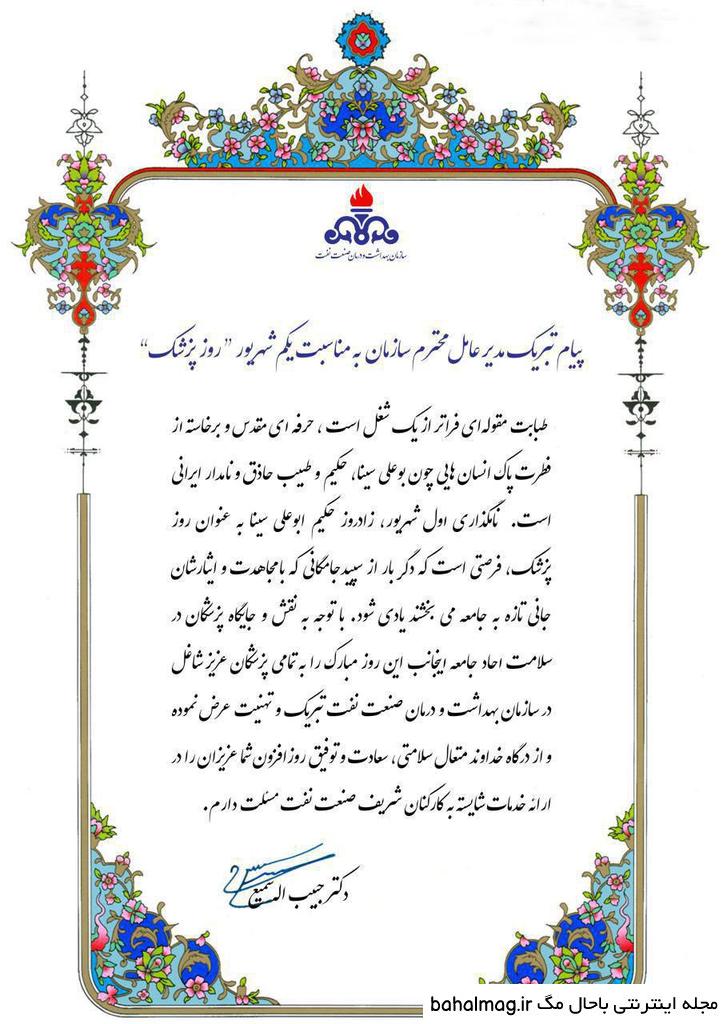 سازمان بهداشت و درمان صنعت نفت
پیام تبریک مدیر عامل محترم سازمان به مناسبت یکم شهریور ”روز پزشک“
طبابت مقوله‌ای فراتر از یک شغل است ، حرفه ای مقدس و برخاسته از
فطرت پاک انسان هایی چون بوعلی سینا، حکیم و طبیب حاذق و نامدار ایرانی
است. نامگذاری اول شهریور، زادروز حکیم ابوعلی سینا به عنوان روز
پزشک، فرصتی است که دگر بار از سپیدجامگانی که با مجاهدت و ایثارشان
جانی تازه به جامعه می بخشند یادی شود. با توجه به نقش و جایگاه پزشکان در
سلامت احاد جامعه اینجانب این روز مبارک را به تمامی پزشکان عزیز شاغل
در سازمان بهداشت و درمان صنعت نفت تبریک و تهنیت عرض نموده
و از درگاه خداوند متعال سلامتی، سعادت و توفیق روزافزون شما عزیزان را در
ارائه خدمات شایسته به کارکنان شریف صنعت نفت مسئلت دارم.
دکتر حبیب اله سمیع
مجله اینترنتی باحال مگ bahalmag.ir